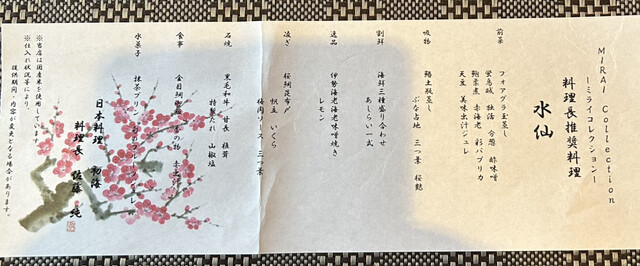 MIRAI Collection
ーミライコレクションー
料理長推奨料理
水仙
前菜
フォアグラ玉蒸し
蛍烏賊 独活 分葱 酢味噌
鮑柔煮 赤海老 彩パプリカ
天豆 美味出汁ジュレ
吸物
蛤土瓶蒸し
ぶなしめじ 三つ葉 桜麩
割鮮
海鮮三種盛り合わせ
あしらい一式
逸品
伊勢海老海老味噌焼き
レモン
凌ぎ
桜鯛昆布〆
帆立 いくら
梅肉ソース 三つ葉
石焼
黒毛和牛 甘長 椎茸
特製たれ 山椒塩
食事
金目鯛
香の物 赤出汁
水菓子
抹茶プリン フルーツ ジュレ
日本料理 初海
料理長 佐藤 純
※当店は国産米を使用しています。
※仕入れ状況等により、
提供期間・内容が変更となる場合があります。